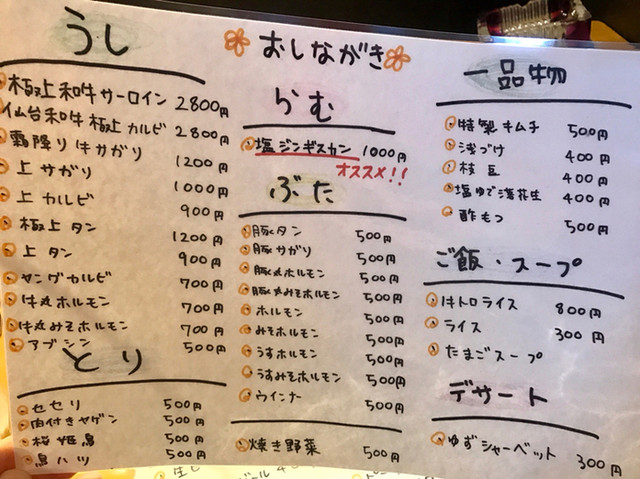 おしながき
うし
極上和牛サーロイン 2800円
仙台和牛極上カルビ 2800円
霜降り牛サガリ 1200円
上サガリ 1000円
上カルビ 900円
極上タン 1200円
上タン 900円
ヤングカルビ 700円
牛丸ホルモン 700円
牛丸みそホルモン 700円
アブシン 500円
とり
セセリ 500円
肉付きヤゲン 500円
桜姫鳥 500円
鳥ハツ 500円
らむ
塩ジンギスカン 1000円
オススメ!!
ぶた
豚タン 500円
豚サガリ 500円
豚丸ホルモン 500円
豚丸みそホルモン 500円
ホルモン 500円
みそホルモン 500円
うすホルモン 500円
うすみそホルモン 500円
ウインナー 500円
焼き野菜 500円
一品物
特製キムチ 500円
浅づけ 400円
枝豆 400円
塩ゆで落花生 400円
酢もつ 500円
ご飯・スープ
牛トロライス 800円
ライス 300円
たまごスープ
デザート
ゆずシャーベット 300円